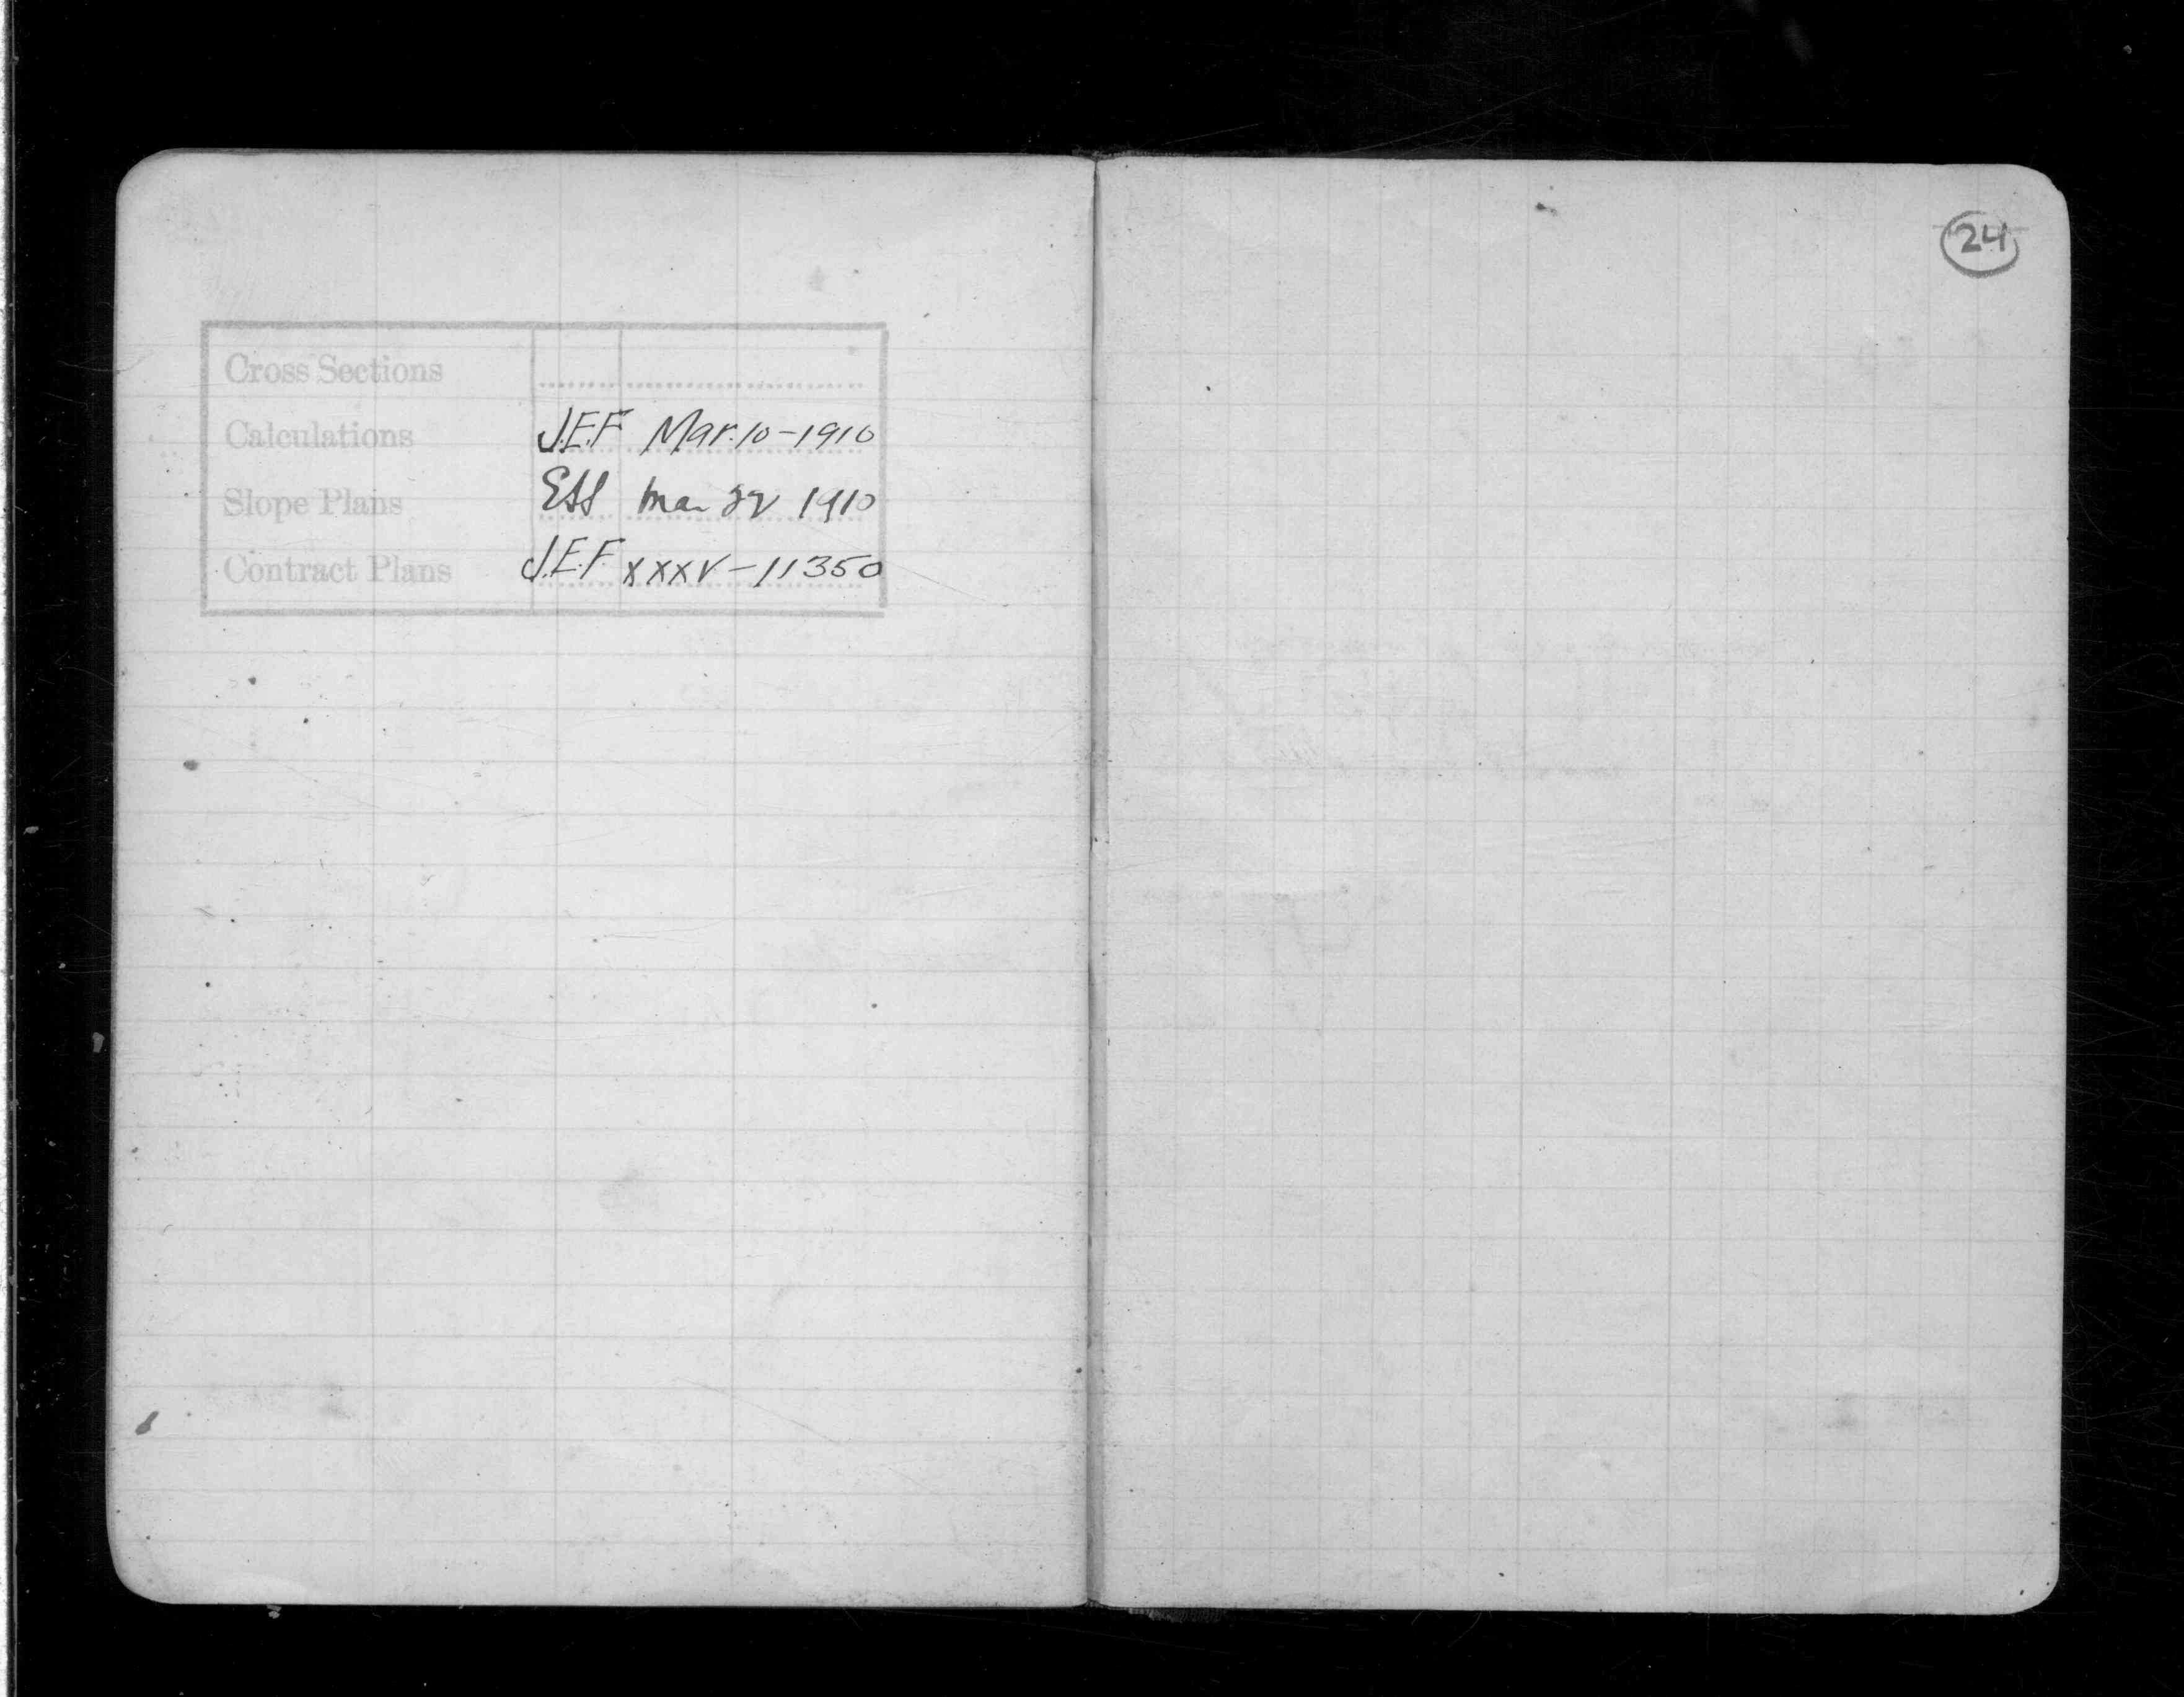 24
Cross Sections
Calculations J.E.F. Mar. 10-1910
Slope Plans 1910
Contract Plans J.E.F. XXXV-11350